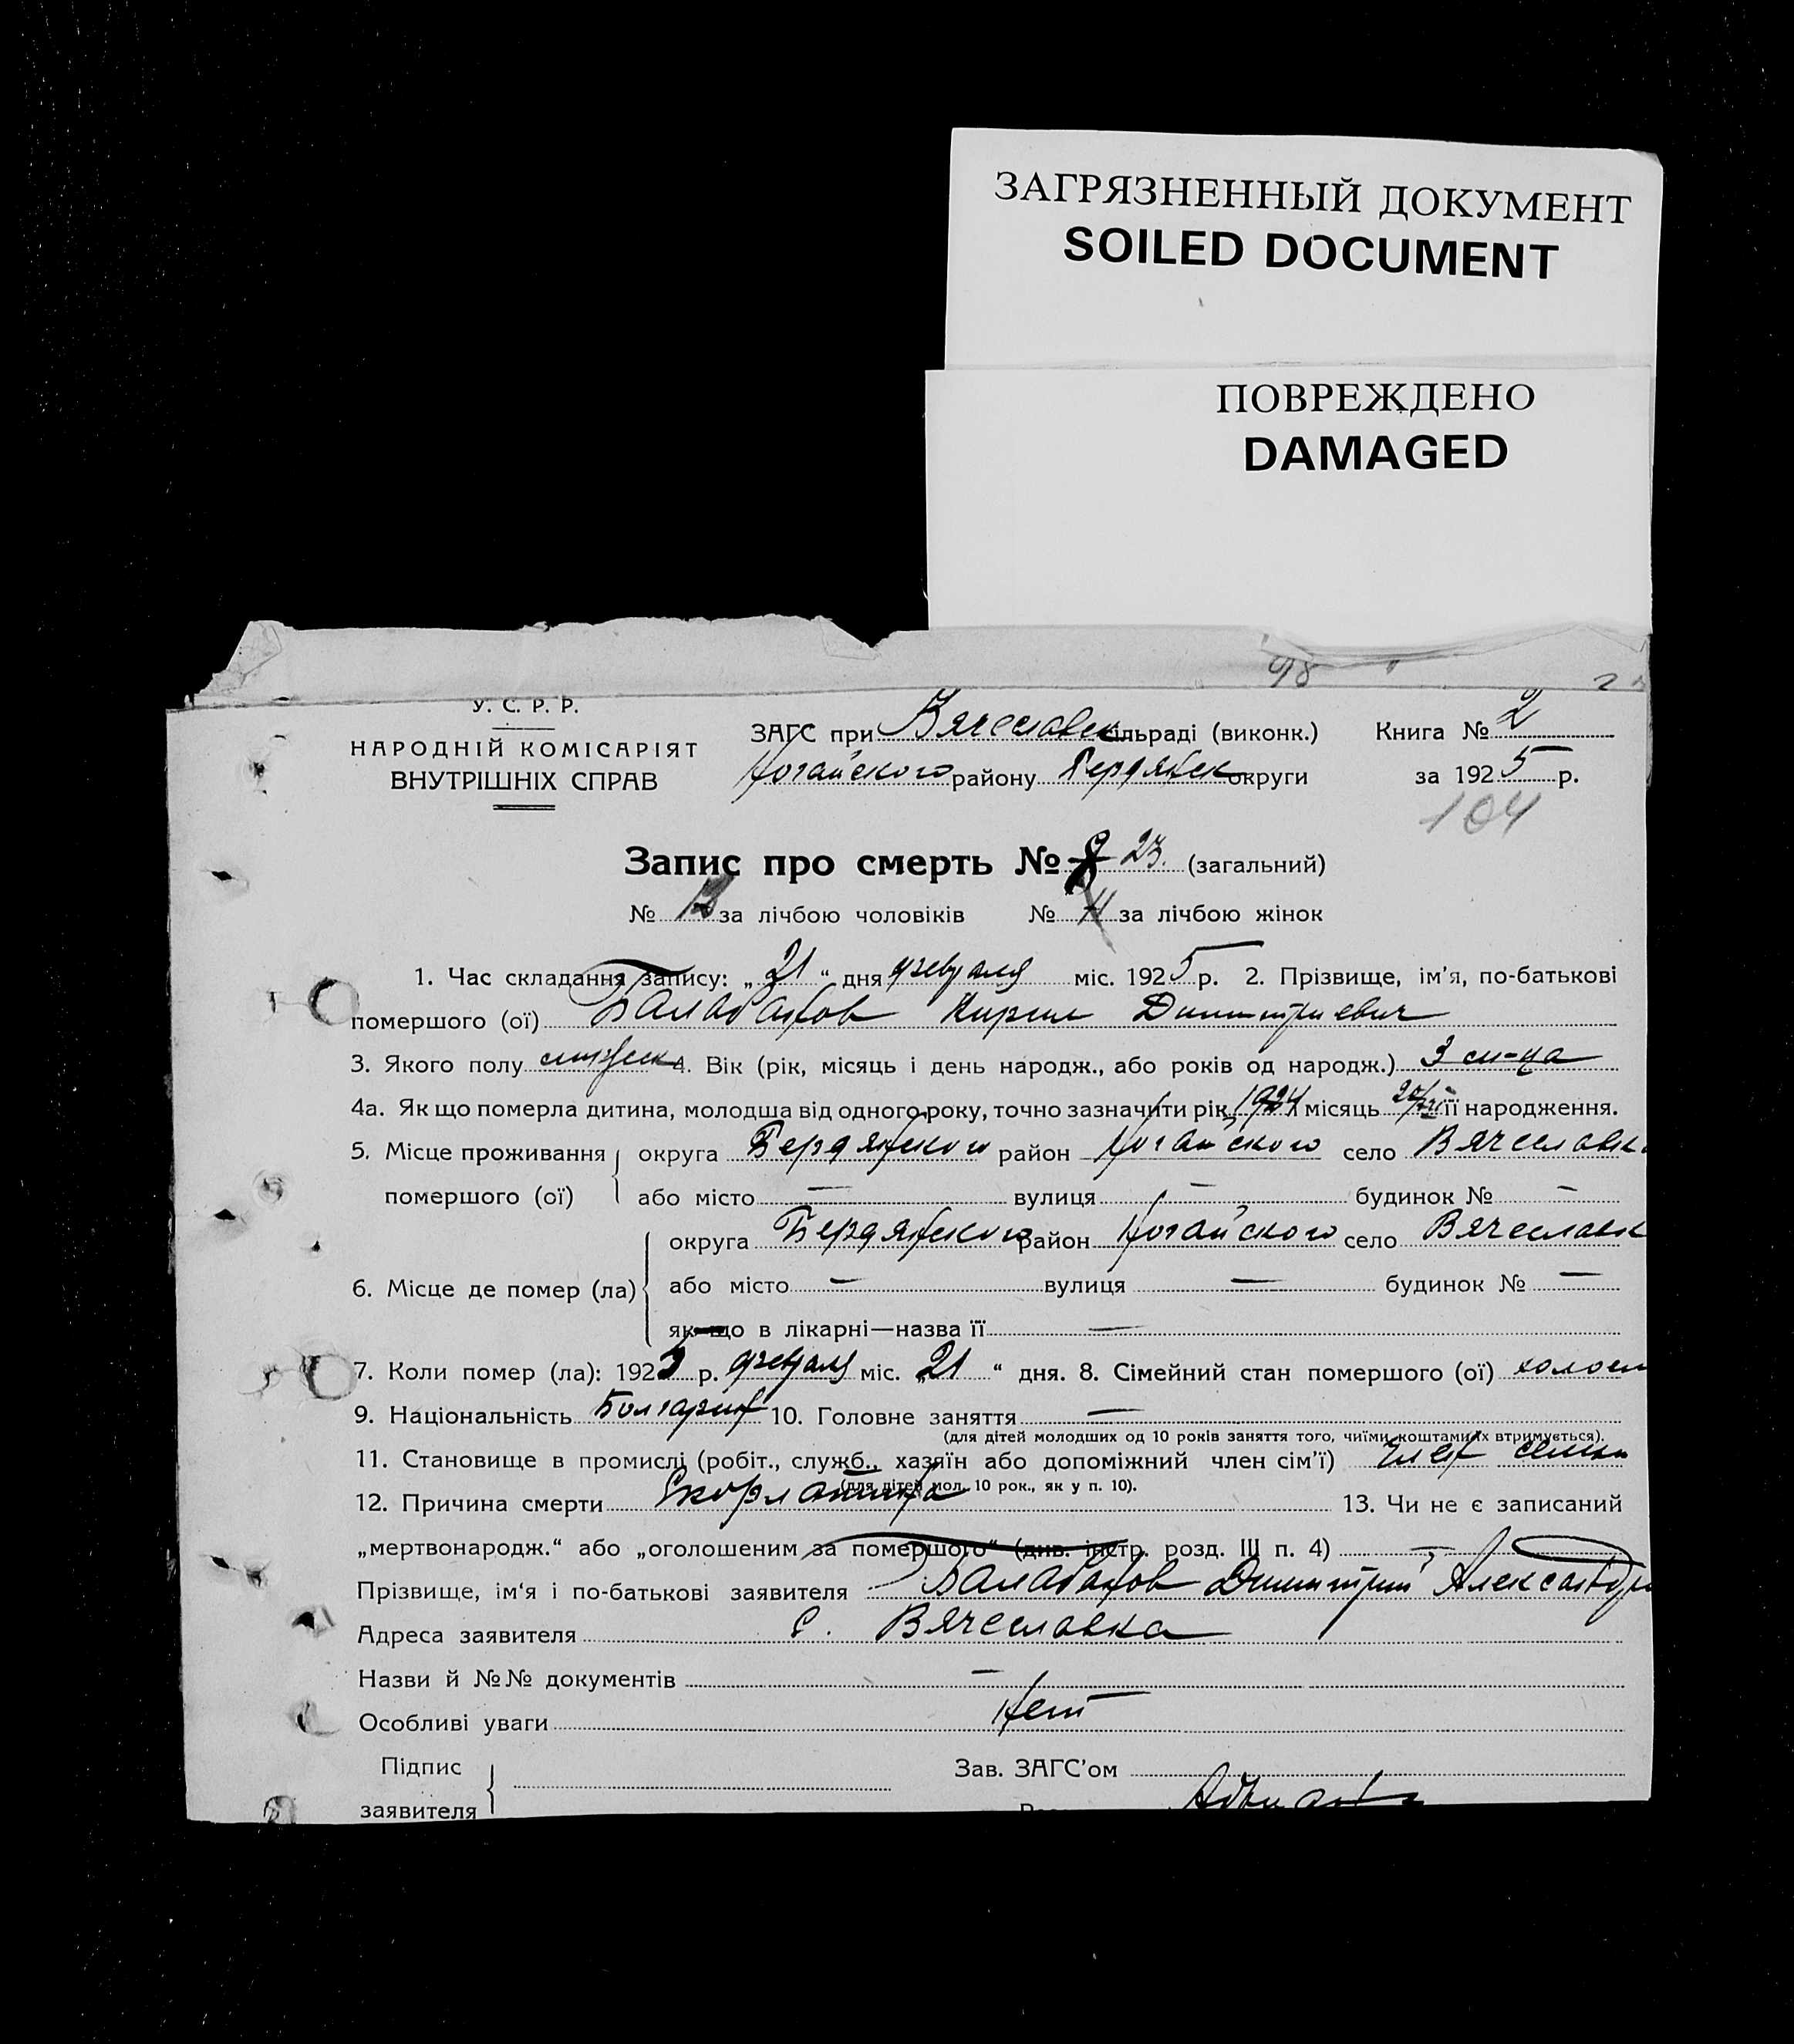 ЗАГРЯЗНЕННЫЙ ДОКУМЕНТ
SOILED DOCUMENT
ПОВРЕЖДЕНО
DAMAGED
98
У. С. Р. Р.
НАРОДНІЙ КОМІСАРІЯТ
ВНУТРІШНІХ СПРАВ
ЗАГС при Вячеславск ільраді (виконк.) Книга № 2
Ногайского району Бердянск округи за 1925 р.
104
Запис про смерть № 23. (загальний)
№ 12 за лічбою чоловіків № за лічбою жінок
1. Час складання запису: „21“ дня февраля міс. 1925 р. 2. Прізвище, ім'я, по-батькові
помершого (ої) Балабанов Кирил Димитриевич
3. Якого полу мужеск 4. Вік (рік, місяць і день народж., або років од народж.) 3 м-ца
4а. Як що померла дитина, молодша від одного року, точно зазначити рік 1924 місяць її народження.
5. Місце проживання округа Бердянского район Ногайского село Вячеславка
помершого (ої) або місто — вулиця — будинок № —
округа Бердянского район Ногайского село Вячеславк
6. Місце де помер (ла) або місто — вулиця — будинок № —
як що в лікарні—назва її —
7. Коли помер (ла): 1925 р. февраля міс. „21“ дня. 8. Сімейний стан помершого (ої) холост
9. Національність Болгарин 10. Головне заняття —
(для дітей молодших од 10 років заняття того, чиїми коштами їх втримується).
11. Становище в промислі (робіт., служб., хазяїн або допоміжний член сім'ї) член семьи
(для дітей мол. 10 рок., як у п. 10).
12. Причина смерти Скорлатина 13. Чи не є записаний
„мертвонародж.“ або „оголошеним за помершого“ (див. інстр. розд. III п. 4) —
Прізвище, ім'я і по-батькові заявителя Балабанов Димитрий Александр
Адреса заявителя с. Вячеславка
Назви й №№ документів —
Особливі уваги Нет
Підпис
заявителя
Зав. ЗАГС'ом